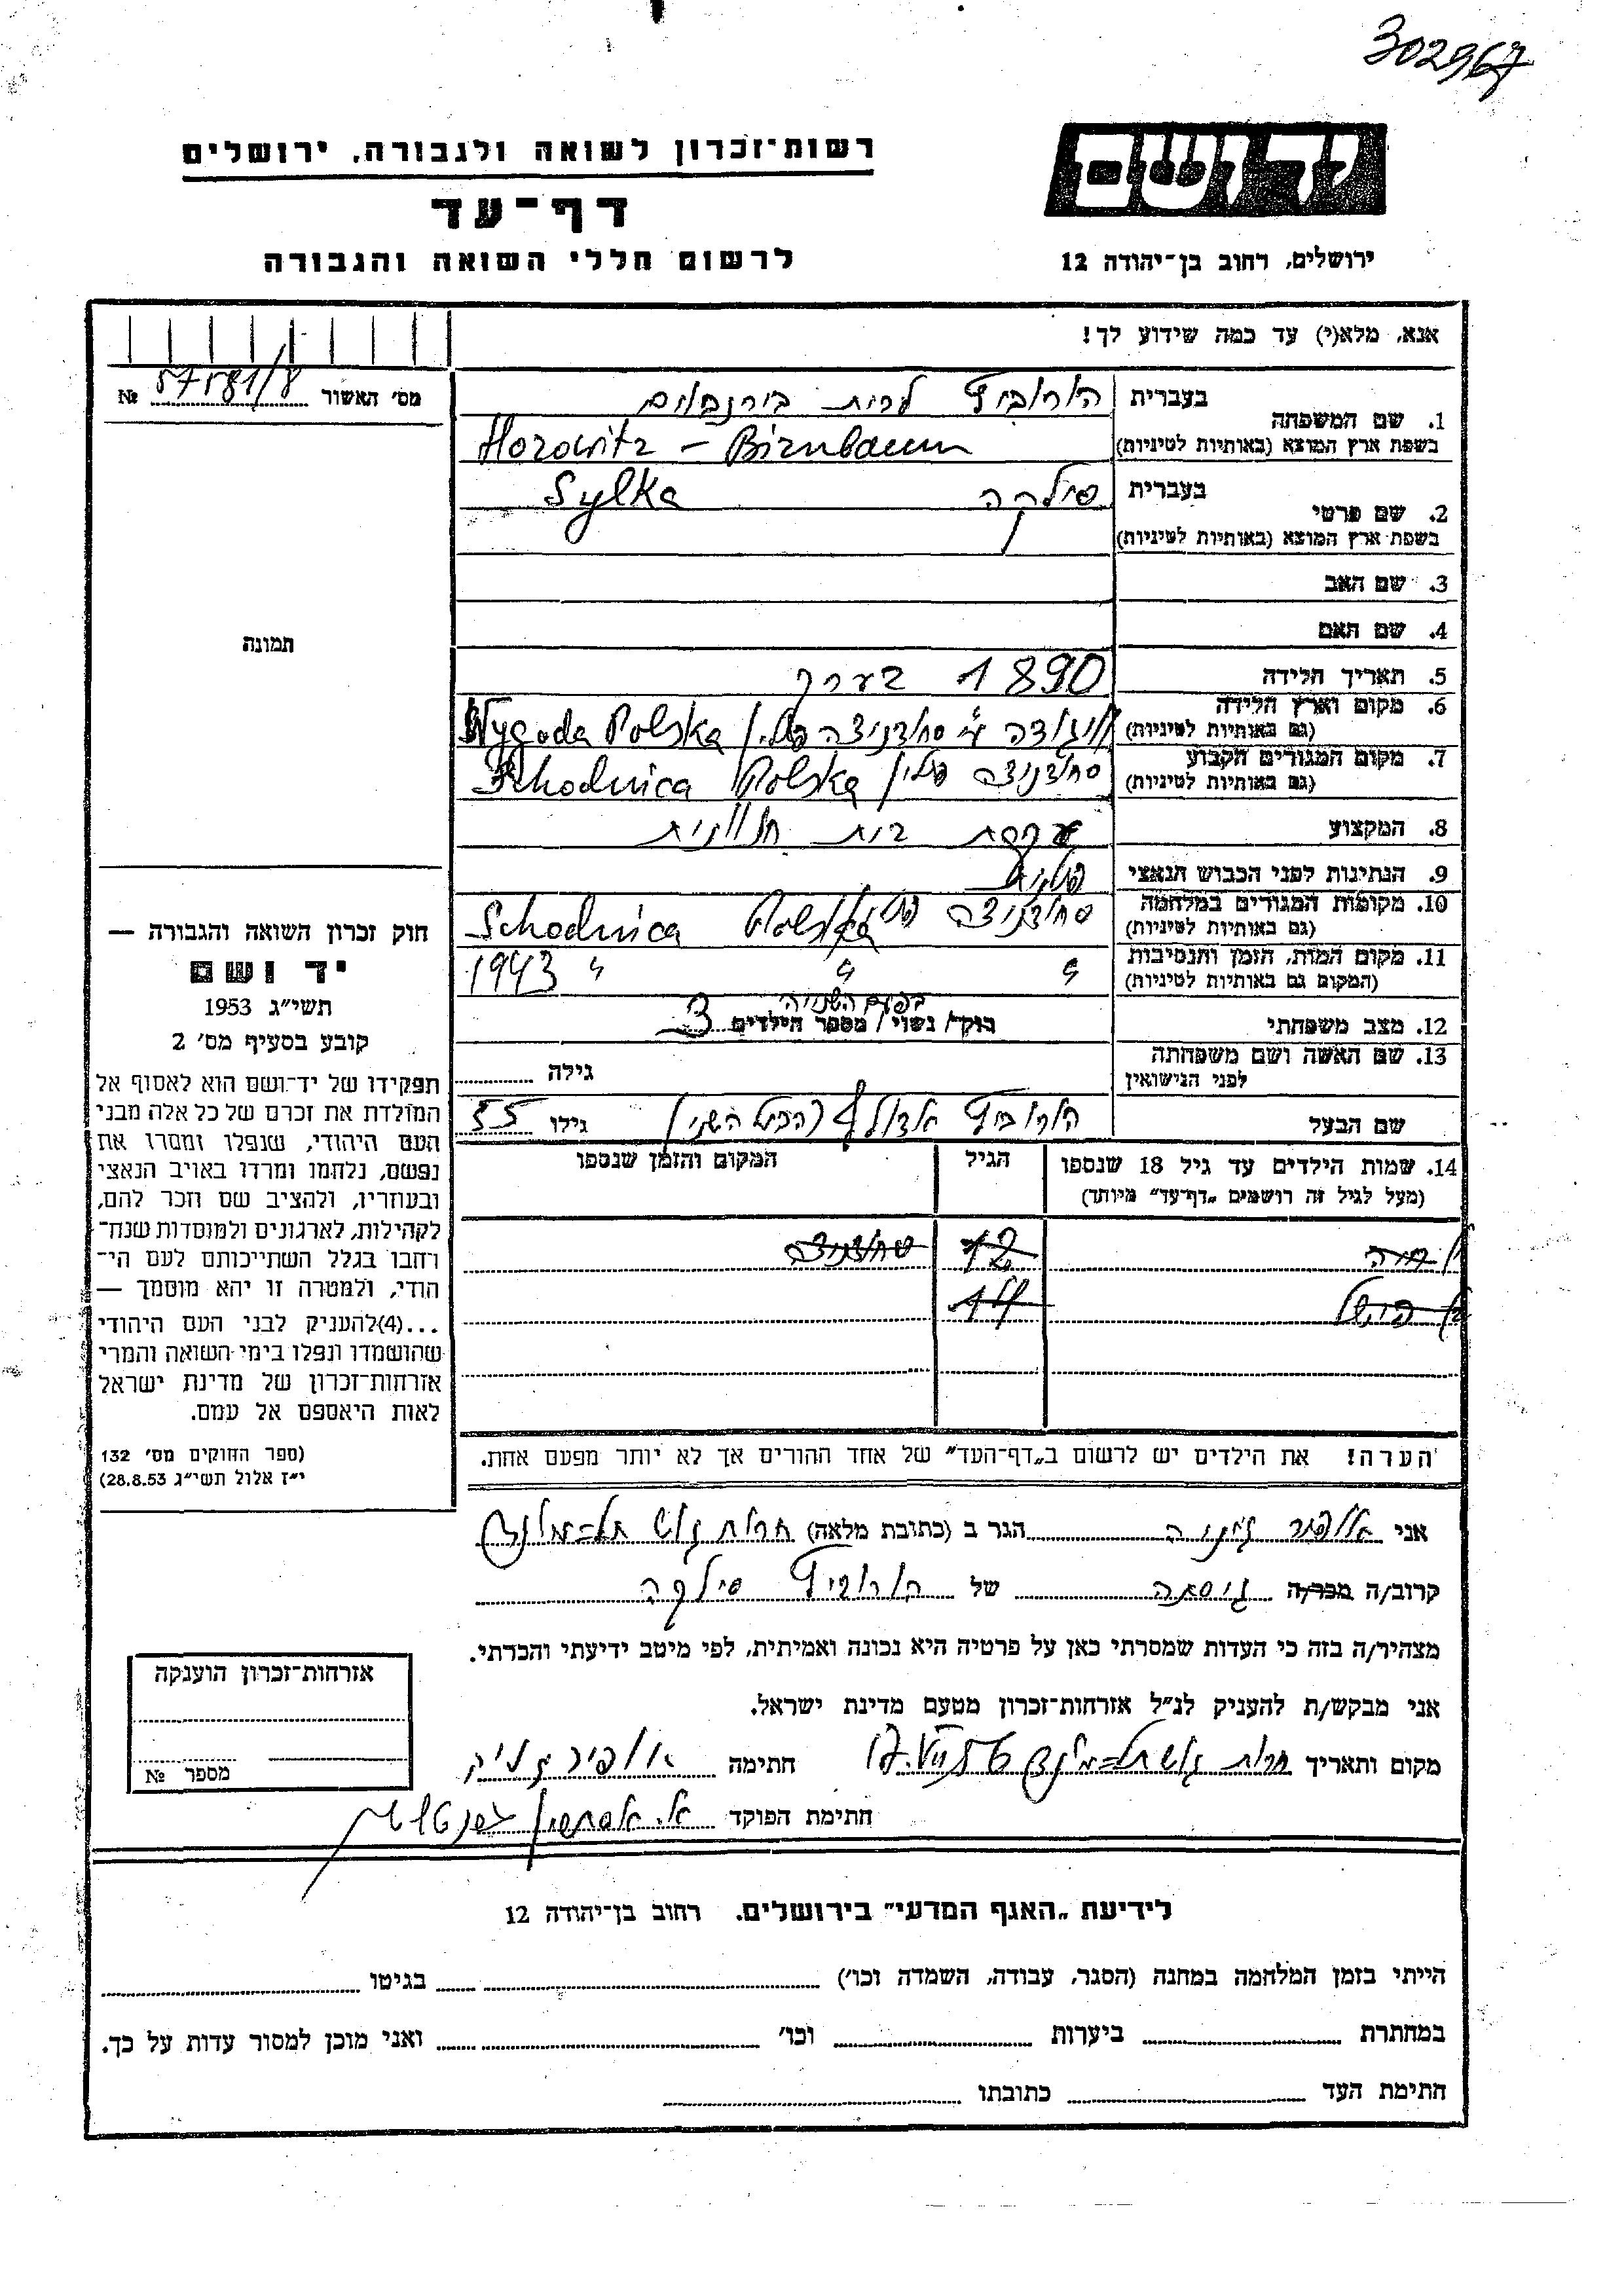 302967
יד ושם
רשות־זכרון לשואה ולגבורה, ירושלים
דף־עד
לרשום חללי השואה והגבורה
ירושלים, רחוב בן־יהודה 12
אנא, מלא(י) עד כמה שידוע לך!
מס' האשור 57581/8 №
בעברית הורוביץ לבית בירנבאום
1. שם המשפחה
בשפת ארץ המוצא (באותיות לטיניות) Horowitz - Birnbaum
בעברית סילקה Sylka
2. שם פרטי
בשפת ארץ המוצא (באותיות לטיניות)
3. שם האב
4. שם האם
תמונה
5. תאריך הלידה 1890 בערך
6. מקום וארץ הלידה
(גם באותיות לטיניות) ויגודה ע"י סחודניצה פולין Wygoda Polska
7. מקום המגורים הקבוע
(גם באותיות לטיניות) סחודניצה פולין Schodnica Polska
8. המקצוע עקרת בית
9. הנתינות לפני הכבוש הנאצי פולנית
10. מקומות המגורים במלחמה
(גם באותיות לטיניות) סחודניצה Schodnica Polska
11. מקום המות, הזמן והנסיבות
(המקום גם באותיות לטיניות) " " " 1943
בפעם השנייה
12. מצב משפחתי רוק/ נשוי/ מספר הילדים 3
13. שם האשה ושם משפחתה
לפני הנישואין גילה
שם הבעל הורוביץ אדולף (הבעל השני) גילו 55
14. שמות הילדים עד גיל 18 שנספו הגיל המקום והזמן שנספו
(מעל לגיל זה רושמים "דף־עד" מיוחד)
12 סחודניצה
14
הערה! את הילדים יש לרשום ב"דף־העד" של אחד ההורים אך לא יותר מפעם אחת.
חוק זכרון השואה והגבורה —
יד ושם
תשי"ג 1953
קובע בסעיף מס' 2
תפקידו של יד־ושם הוא לאסוף אל
המולדת את זכרם של כל אלה מבני
העם היהודי, שנפלו ומסרו את
נפשם, נלחמו ומרדו באויב הנאצי
ובעוזריו, ולהציב שם וזכר להם,
לקהילות, לארגונים ולמוסדות שנח־
רבו בגלל השתייכותם לעם הי־
הודי, ולמטרה זו יהא מוסמך —
...(4) להעניק לבני העם היהודי
שהושמדו ונפלו בימי השואה והמרי
אזרחות־זכרון של מדינת ישראל
לאות היאספם אל עמם.
(ספר החוקים מס' 132
י"ז אלול תשי"ג 28.8.53)
אני אופיר הגר ב (כתובת מלאה)
קרוב/ה מכר/ה גיסתה של הורוביץ סילקה
מצהיר/ה בזה כי העדות שמסרתי כאן על פרטיה היא נכונה ואמיתית, לפי מיטב ידיעתי והכרתי.
אני מבקש/ת להעניק לנ"ל אזרחות־זכרון מטעם מדינת ישראל.
מקום ותאריך חתימה אופיר
חתימת הפוקד
אזרחות־זכרון הוענקה
מספר №
לידיעת "האגף המדעי" בירושלים. רחוב בן־יהודה 12
הייתי בזמן המלחמה במחנה (הסגר, עבודה, השמדה וכו') בגיטו
במחתרת ביערות וכו' ואני מוכן למסור עדות על כך.
חתימת העד כתובתו